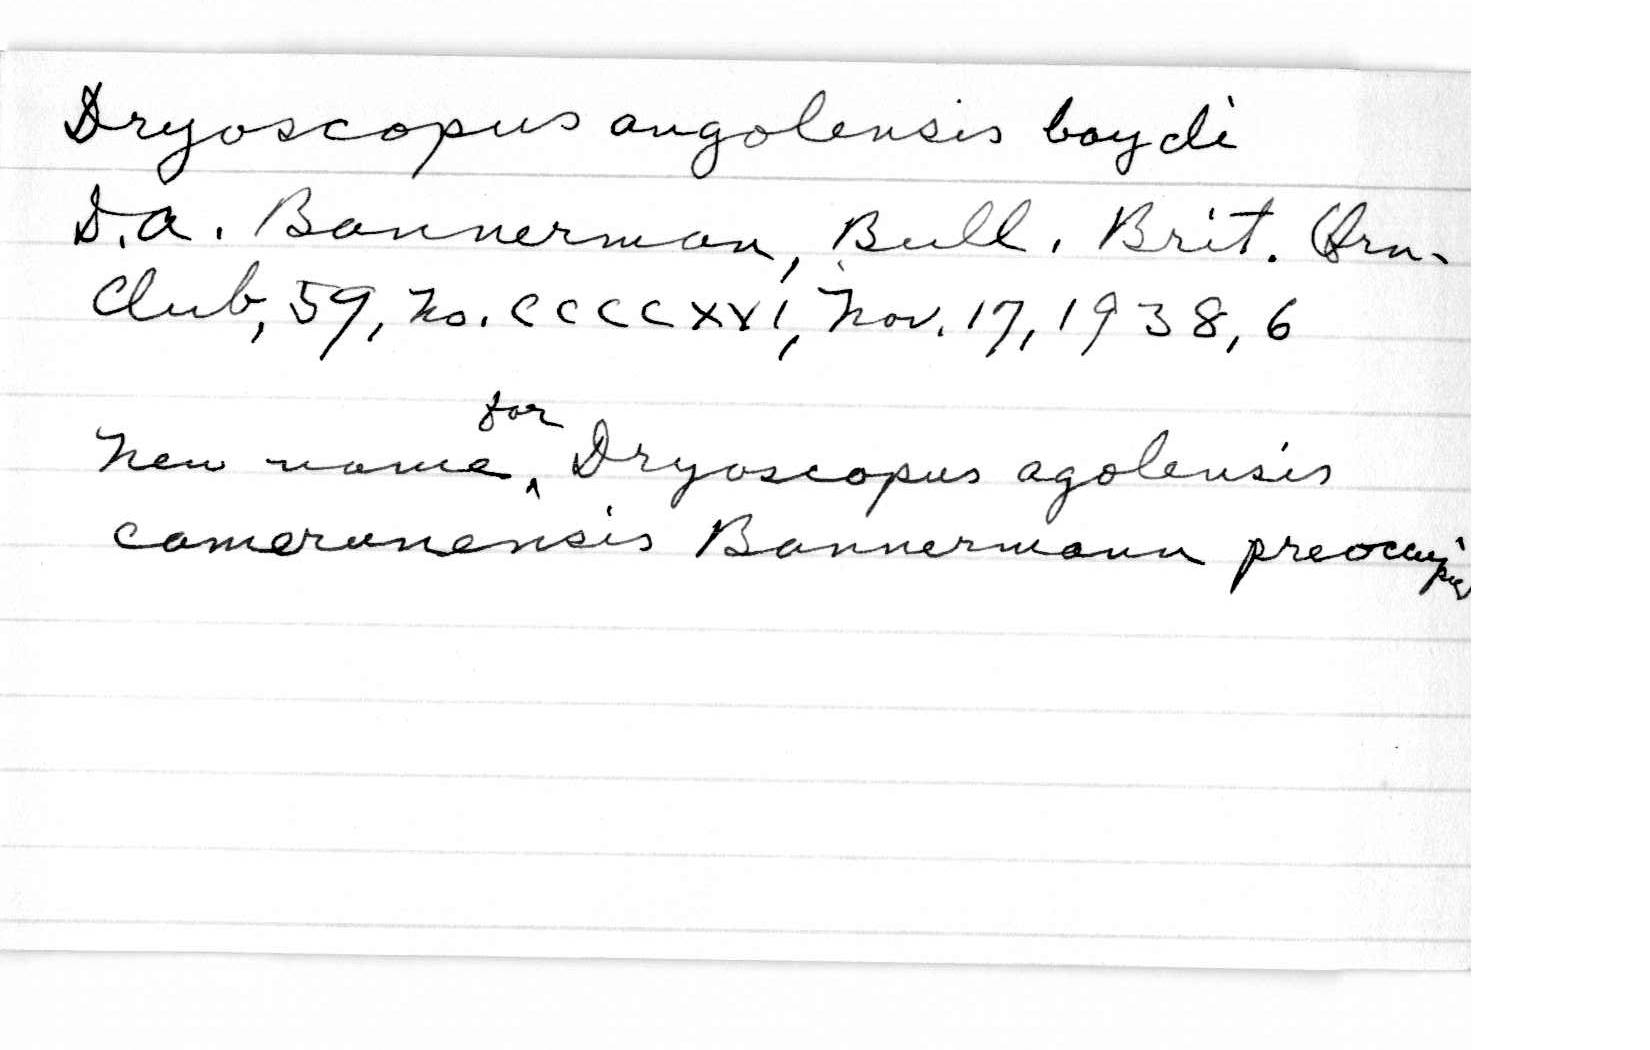 Dryoscopus angolensis boydi
D.A. Bannerman, Bull. Brit. Orn.
Club, 59, No. CCCCXVI, Nov. 17, 1938, 6
New name for Dryoscopus agolensis
camerunensis Bannermann preoccupied